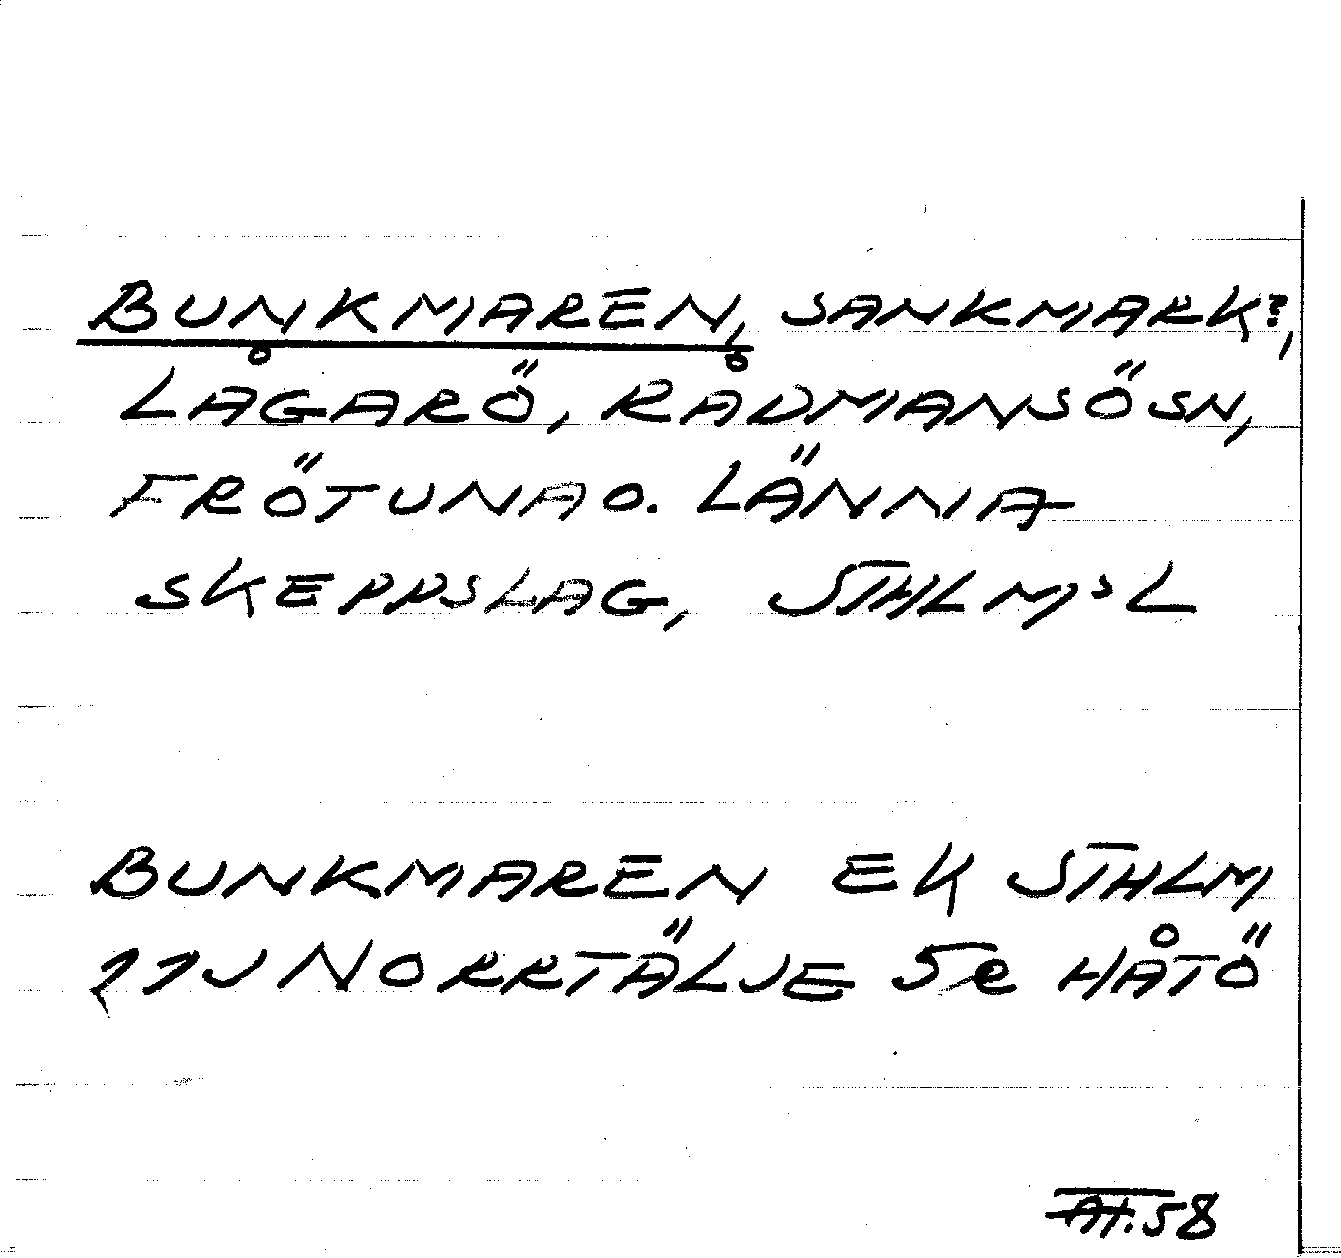 BUNKMAREN, SANKMARK?,
LÅGARÖ, RÅDMANSÖ SN,
FRÖTUNA O. LÄNNA
SKEPPSLAG, STHLMS L
BUNKMAREN EK STHLM
11J NORRTÄLJE 5e HÅTÖ
58